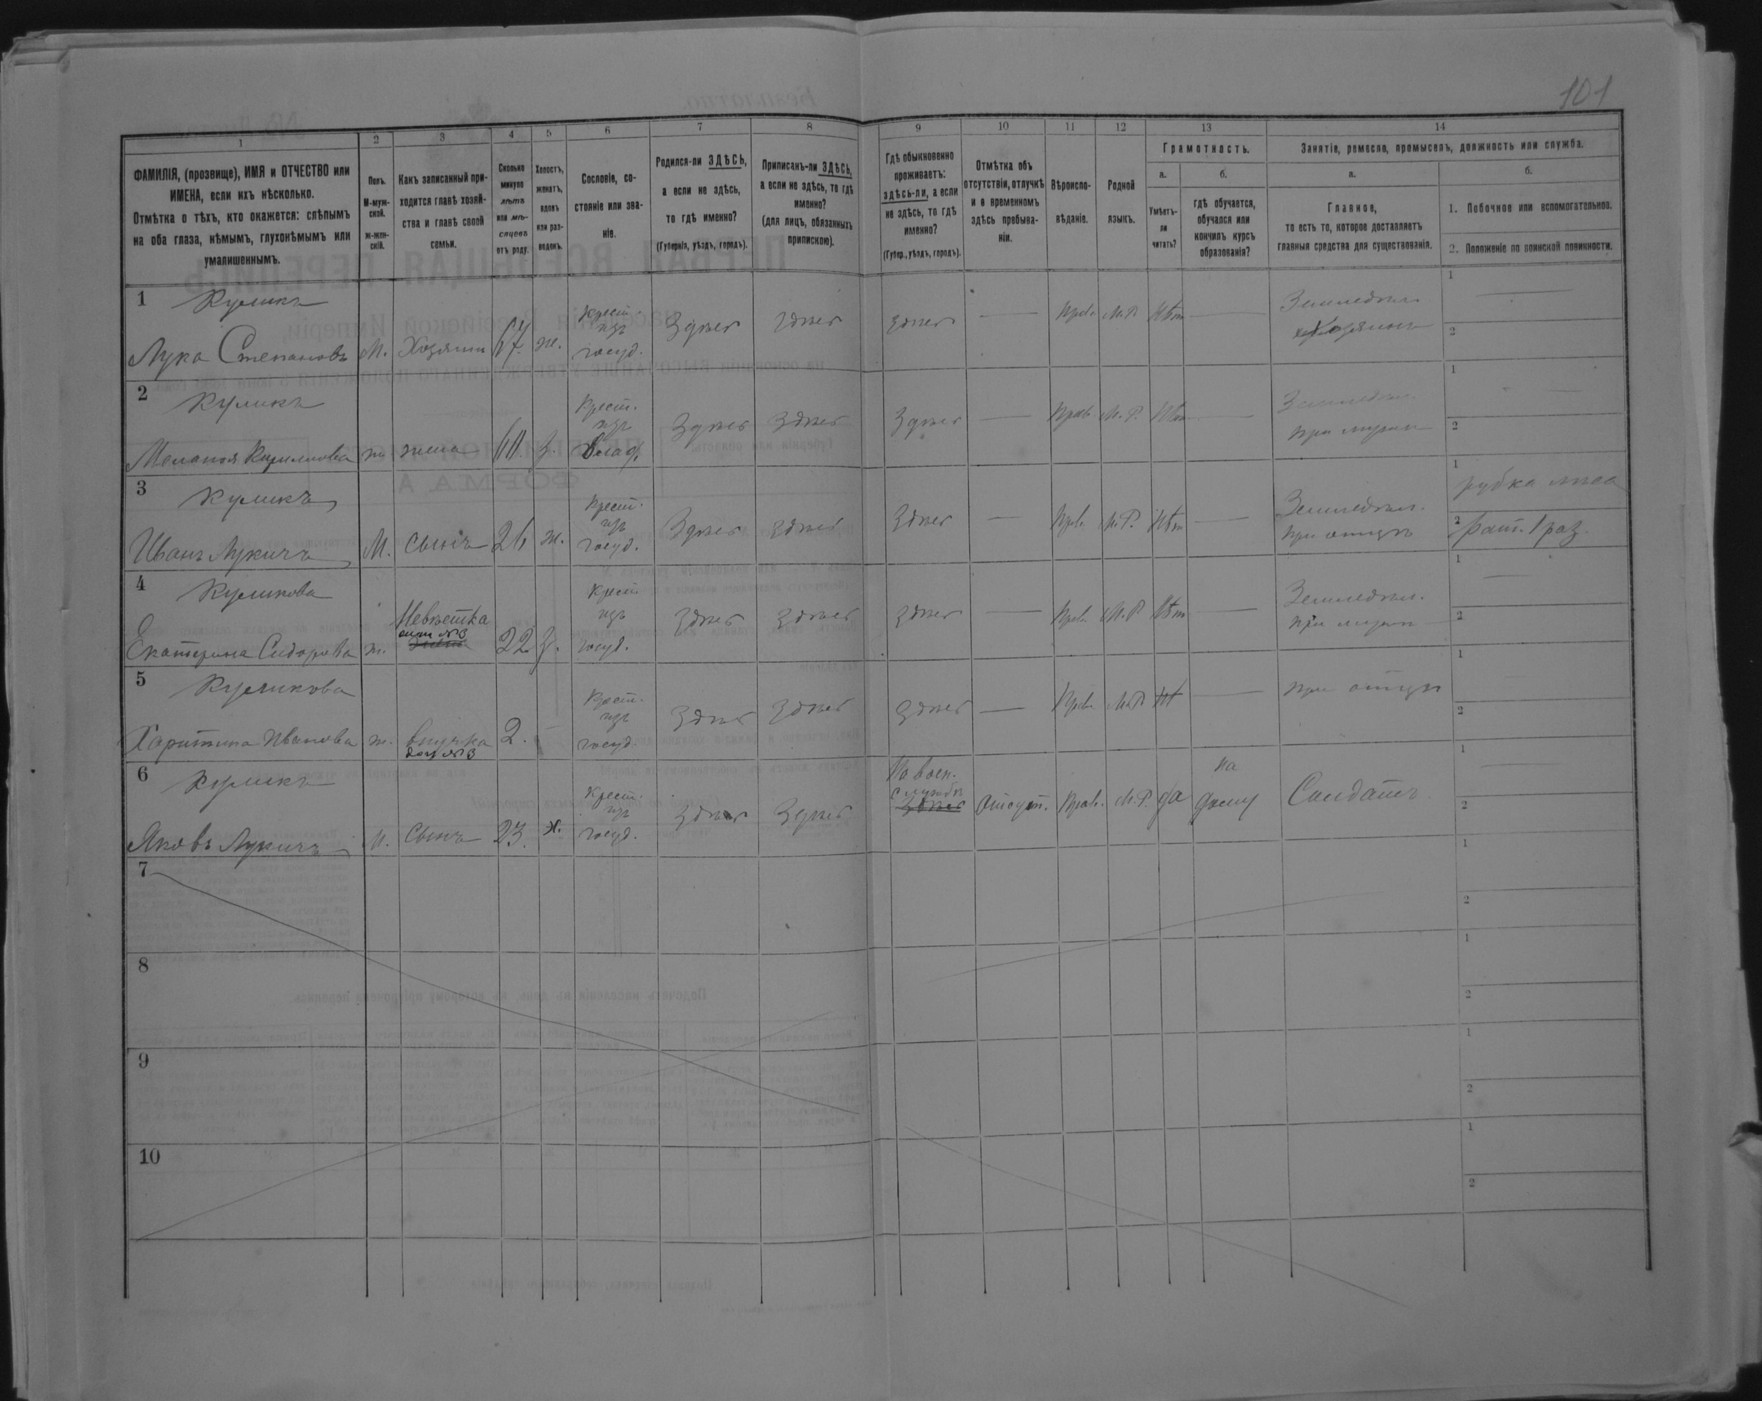 101
1 2 3 4 5 6 7 8 9 10 11 12 13 14
ФАМИЛІЯ, (прозвище), ИМЯ и ОТЧЕСТВО или
ИМЕНА, если ихъ нѣсколько.
Отмѣтка о тѣхъ, кто окажется: слѣпымъ
на оба глаза, нѣмымъ, глухонѣмымъ или
умалишеннымъ.
Полъ.
М-муж-
ской.
ж-жен-
скій.
Какъ записанный при-
ходится главѣ хозяй-
ства и главѣ своей
семьи.
Сколько
минуло
лѣтъ
или мѣ-
сяцевъ
отъ роду.
Холостъ,
женатъ,
вдовъ
или раз-
веденъ.
Сословіе, со-
стояніе или зва-
ніе.
Родился-ли ЗДѢСЬ,
а если не здѣсь,
то гдѣ именно?
(Губернія, уѣздъ, городъ).
Приписанъ-ли ЗДѢСЬ,
а если не здѣсь, то гдѣ
именно?
(для лицъ, обязанныхъ
припискою).
Гдѣ обыкновенно
проживаетъ:
здѣсь-ли, а если
не здѣсь, то гдѣ
именно?
(Губер., уѣздъ, городъ).
Отмѣтка объ
отсутствіи, отлучкѣ
и о временномъ
здѣсь пребыва-
ніи.
Вѣроиспо-
вѣданіе.
Родной
языкъ.
Грамотность.
а.
Умѣетъ-
ли
читать?
б.
гдѣ обучается,
обучался или
кончилъ курсъ
образованія?
Занятіе, ремесло, промыселъ, должность или служба.
а.
Главное,
то есть то, которое доставляетъ
главныя средства для существованія.
б.
1. Побочное или вспомогательное.
2. Положеніе по воинской повинности.
1 Куликъ
Лука Степановъ М. Хозяинъ 67 ж. Крест. изъ госуд. Здѣсь Здѣсь Здѣсь — Прав. М.Р. Нѣт — Земледѣл. хозяинъ 1 — 2
2 Куликъ
Меланья Кирилова ж. жена 60. з. Крест. изъ Здѣсь Здѣсь Здѣсь — Прав. М.Р. Нѣт — Земледѣл. при мужѣ 1 — 2
3 Куликъ
Иванъ Лукичъ М. Сынъ 26 ж. Крест. изъ госуд. Здѣсь Здѣсь Здѣсь — Прав. М.Р. Нѣт — Земледѣл. при отцѣ 1 рубка лѣса 2 рат. 1 раз.
4 Куликова
Екатерина Сидорова ж. Невѣстка жена №3 22 з. Крест. изъ госуд. Здѣсь Здѣсь Здѣсь — Прав. М.Р. Нѣт — Земледѣл. при мужѣ 1 — 2
5 Куликова
Харитина Иванова ж. внучка дочь №3 2. — Крест. изъ госуд. Здѣсь Здѣсь Здѣсь — Прав. М.Р. Нѣт — при отцѣ 1 — 2
6 Куликъ
Яковъ Лукичъ М. Сынъ 23. х. Крест. изъ госуд. Здѣсь Здѣсь На воен. службѣ Здѣсь отсут. Прав. М.Р. да на дому Солдатъ 1 — 2
7 1 2
8 1 2
9 1 2
10 1 2